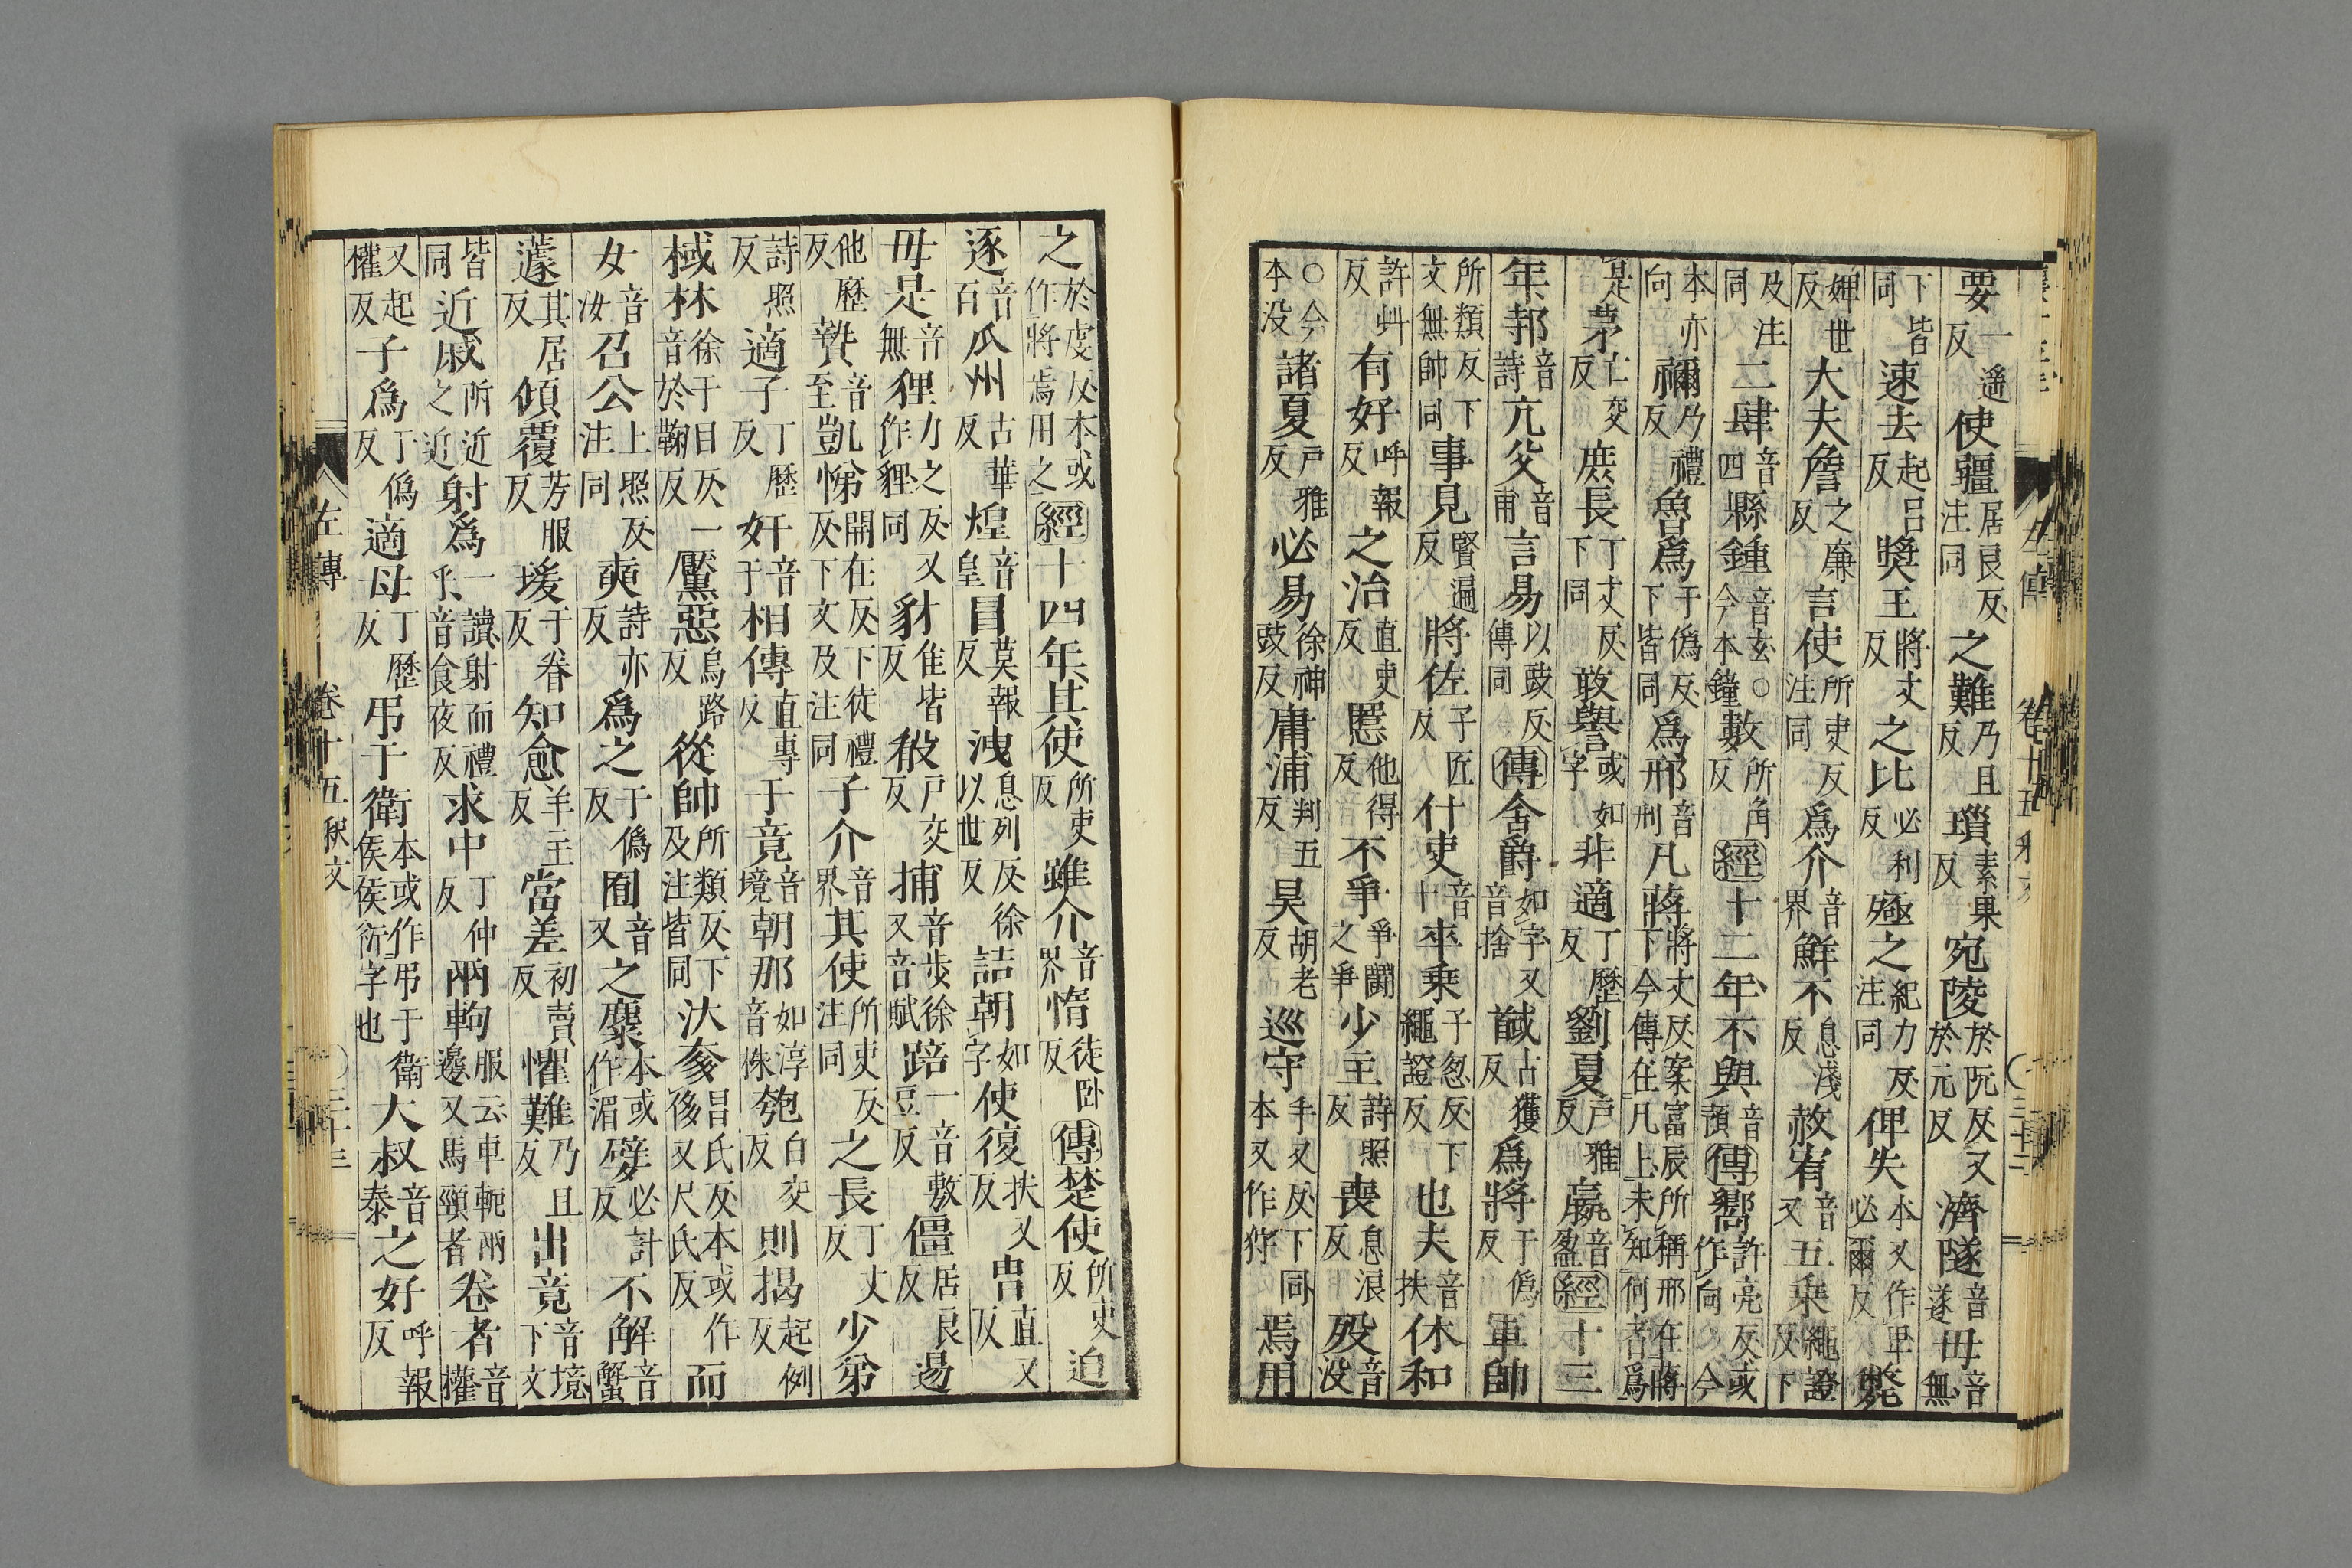 要一遥反使疆居良反注同之難乃且反瑣素果反宛陵於阮反又於元反濟隧音遂毋音無
下皆同速去起呂反獎王將丈反之比必利反殛之紀力反注同俾失本又作卑必爾反斃
婢世反大夫詹之廉反言使所吏反注同爲介音界鮮不息淺反赦宥音又五乘繩證反下
及注同二肆音四縣鍾音玄○今本鐘數所角反經十二年不與音預傳嚮許亮反或作向今
本亦向禰乃禮反魯爲于偽反下皆同爲邢音刑凡蔣將丈反案富辰所稱邢在蔣下今傳在凡上未知何者爲
是茅亡交反庶長丁丈反下同敢譽或如字非適丁歷反劉夏戶雅反嬴音盈經十三
年邿音詩亢父音甫言易以豉反傳同傳舍爵如字又音捨馘古獲反爲將于偽反軍帥
所類反下文無帥同事見賢遍反將佐子匠反什吏音十卒乘子忽反下繩證反也夫音扶休和
許虯反有好呼報反之治直吏反慝他得反不爭爭鬭之爭少主詩照反喪息浪反歿音没
○今本没諸夏戶雅反必易徐神豉反庸浦判五反昊胡老反巡守手又反下同本又作狩焉用
左傳 卷十五釈文 ○三十二
之於虔反本或作將焉用之經十四年且使所吏反雖介音界惰徒卧反傳楚使所吏反迫
逐音百瓜州古華反煌音皇冒莫報反洩息列反徐以世反詰朝如字使復扶又反冑直又反
毋是音無狸力之反又作貍同豺仕皆反殽戶交反捕音步徐又音賦踣一音敷豆反僵居良反逷
他歷反贄音至凱悌開在反下徒禮反下文及注同子介音界其使所吏反注同之長丁丈反少弟
詩照反適子丁歷反奸音干相傳直專反于竟音境朝那如淳音株匏白交反則揭起例反
棫林徐于目反一音於鞠反黶惡烏路反從帥所類反下及注皆同汏奓昌氏反本或作侈又尺氏反而
女音汝召公上照反注同奭詩亦反爲之于偽反囿音又之麋本或作湄嬖必計反不解音蟹
蘧其居反傾覆芳服反瑗于眷反知愈羊主反當差初賣反懼難乃且反出竟音境下文
皆同近戚所近之近射爲一讀射而禮乎音食夜反求中丁仲反兩軥服云車軛兩邊叉馬頸者卷者音權
又起權反子爲丁偽反適母丁歷反弔于衛侯本或作弔于衛侯衎字也大叔音泰之好呼報反
左傳 卷十五釈文 ○三十三